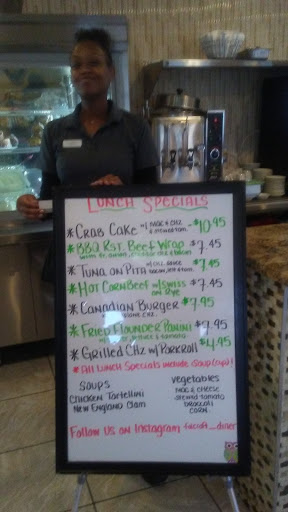 LUNCH SPECIALS
* CRAB CAKE w/ MAC & CHZ & stewed tom. - $10.45
* BBQ RST. BEEF WRAP $7.45
* TUNA ON PITA w/ CHZ, $7.45
* HOT CORN BEEF w/ SWISS ON RYE $7.45
* CANADIAN BURGER $7.95
* FRIED FLOUNDER PANINI $7.95
lettuce & tomato
* GRILLED CHZ w/ PORKROLL $4.95
* All LUNCH Specials include Soup (cup)!
SOUPS
CHICKEN TORTELLINI
NEW ENGLAND CLAM
VEGETABLES
MAC & CHEESE
STEWED TOMATO
BROCCOLI
CORN
FOLLOW US ON INSTAGRAM